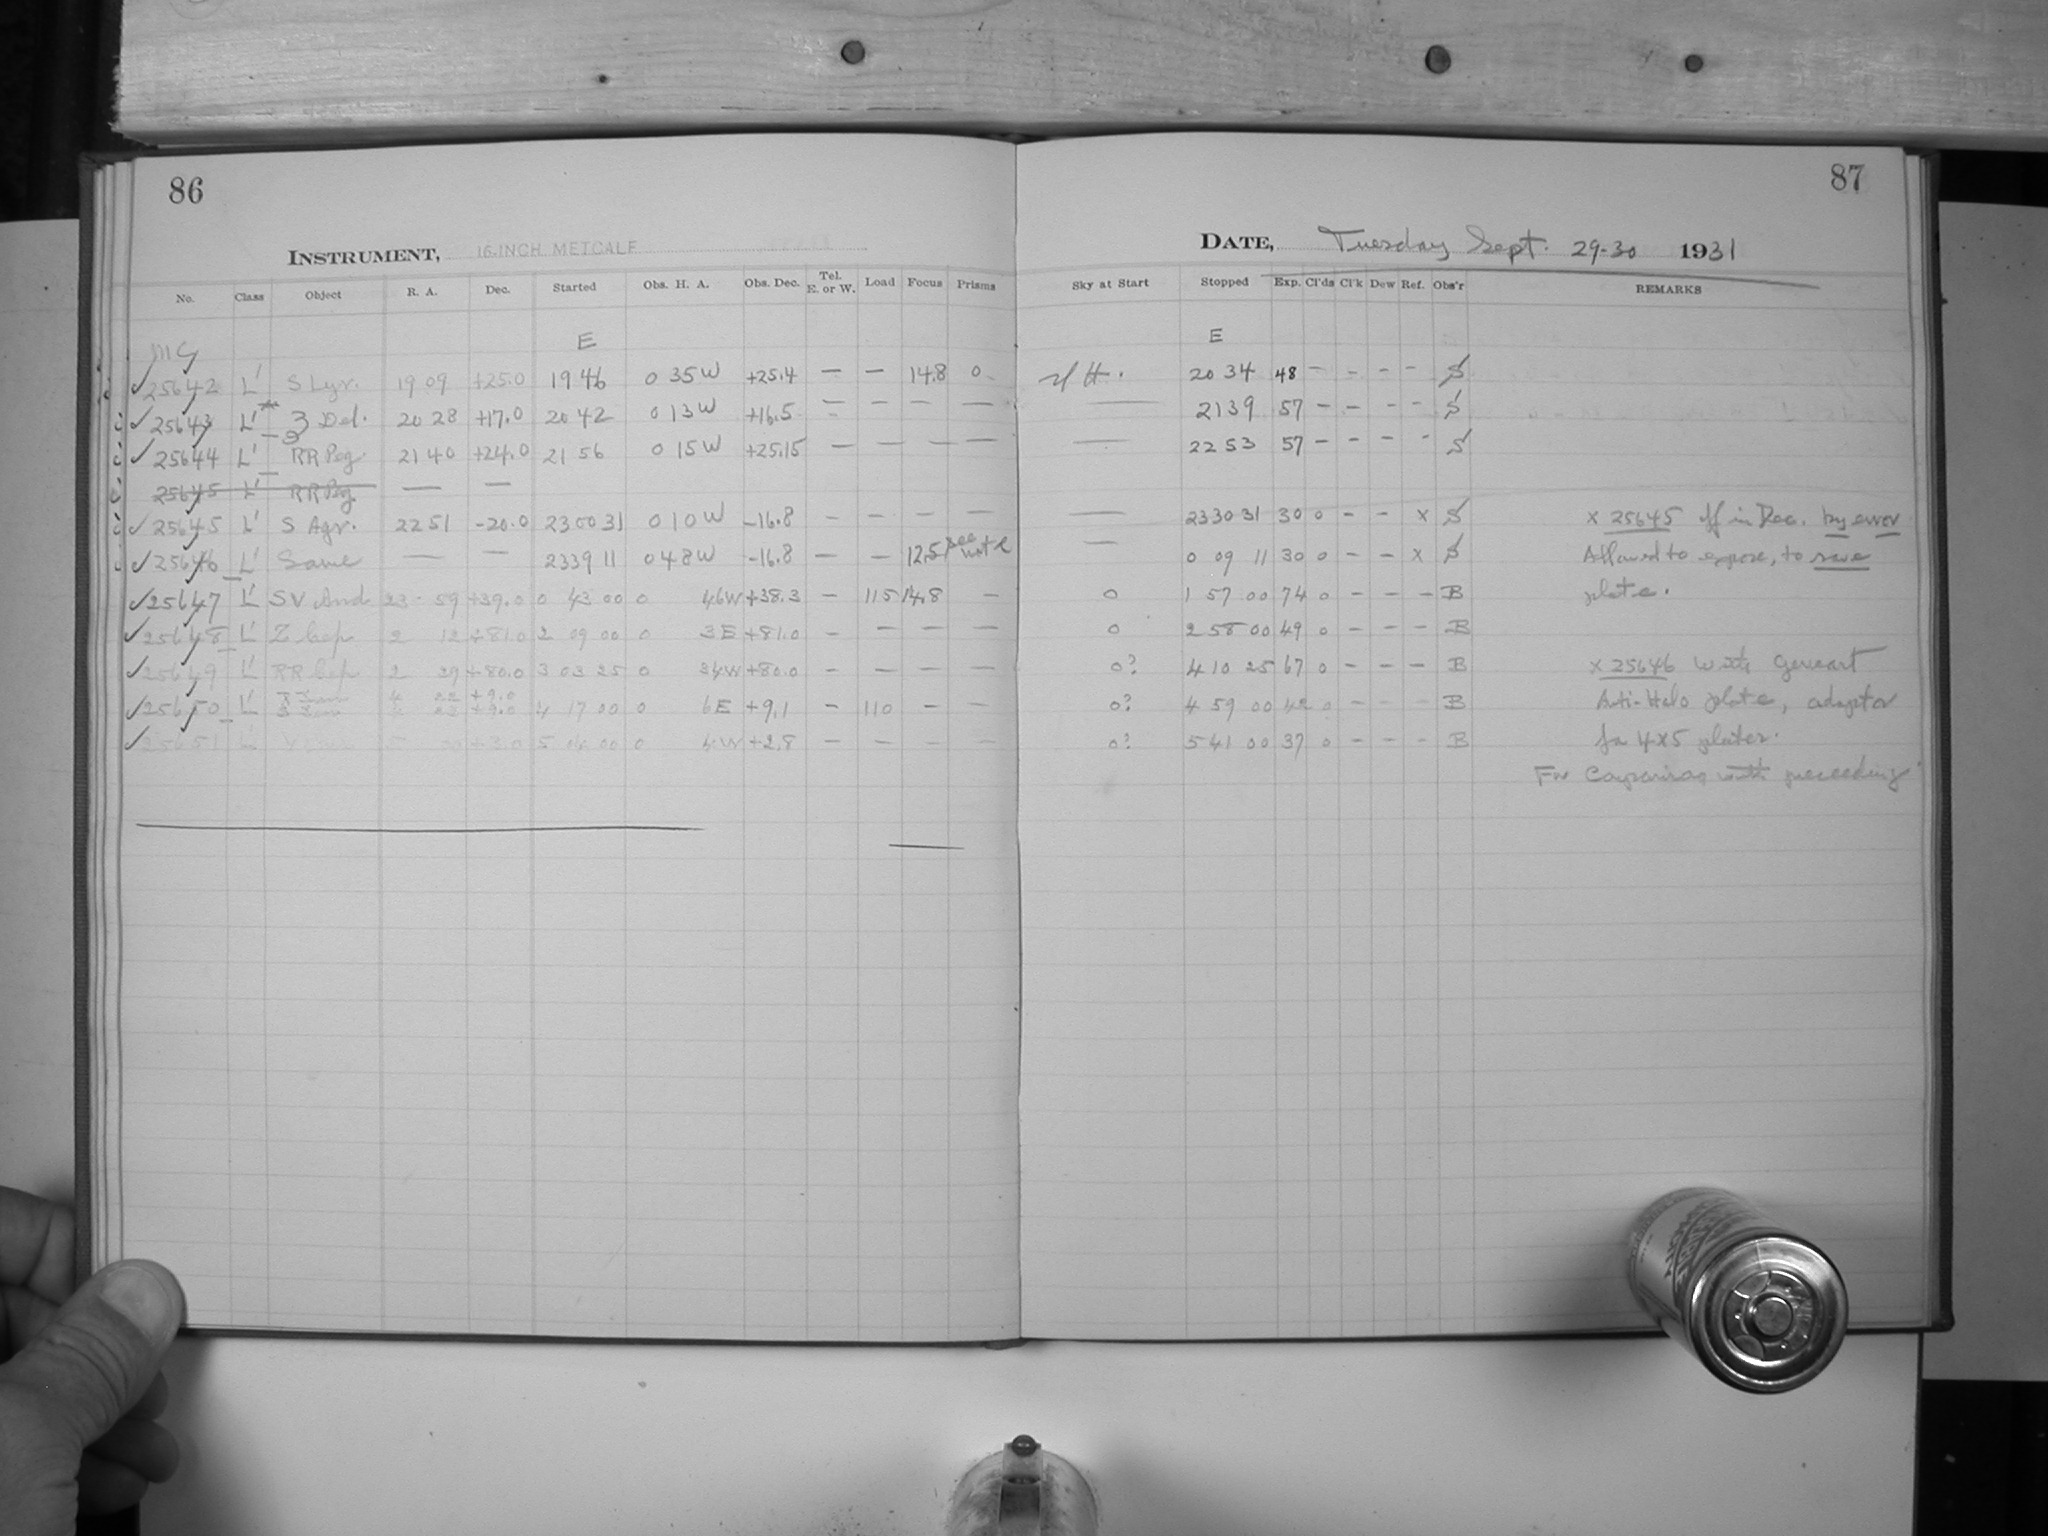 86
INSTRUMENT, 16-INCH METCALF
No. Class Object R. A. Dec. Started Obs. H. A. Obs. Dec. Tel. E. or W. Load Focus Prisms
E
MC
25642 L' S Lyr. 19 09 +25.0 19 46 0 35 W +25.4 — — 14.8 0
25643 L' Z Del. 20 28 +17.0 20 42 0 13 W +16.5 — — — —
25644 L' RR Peg. 21 40 +24.0 21 56 0 15 W +25.15 — — — —
25645 L' RR Peg — —
25645 L' S Aqr. 22 51 -20.0 23 00 31 0 10 W -16.8 — — — —
25646 L' Same — — 23 39 11 0 48 W -16.8 — — 12.5 see note
25647 L' SV And 23 59 +39.0 0 43 00 0 46 W +38.3 — 115 14.8 —
25648 L' Z Cep 2 12 +81.0 2 09 00 0 3 E +81.0 — — — —
25649 L' RR Cep 2 29 +80.0 3 03 25 0 34 W +80.0 — — — —
25650 L' 4 22 +9.0 4 17 00 0 6 E +9.1 — 110 — —
25651 L' 5 00 +3.0 5 04 00 0 4 W +2.8 — — — —
87
DATE, Tuesday Sept. 29-30 1931
Sky at Start Stopped Exp. Cl'ds Cl'k Dew Ref. Obs'r REMARKS
E
20 34 48 — — — — S
— 21 39 57 — — — — S
— 22 53 57 — — — — S
— 23 30 31 30 0 — — x S x 25645 off in Dec. by error
— 0 09 11 30 0 — — x S Allowed to expose, to save
0 1 57 00 74 0 — — — B plate.
0 2 58 00 49 0 — — — B
0? 4 10 25 67 0 — — — B x 25646 with Geveart
0? 4 59 00 42 0 — — — B Anti-Halo plate, adaptor
0? 5 41 00 37 0 — — — B for 4x5 plates.
For Comparison with preceeding